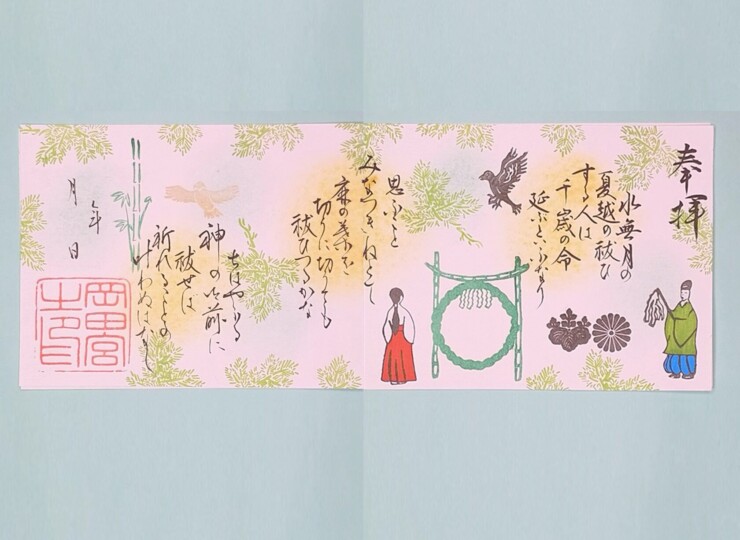 奉拝
水無月の
夏越の祓ひ
する人は
千歳の命
延ぶといふなり
思ふこと
みなつきねとて
麻の葉を
切りに切りても
祓ひつるかな
ちはやふる
神の御前に
祓せば
祈れることの
叶わぬはなし
年
月 日
岡田宮
之印